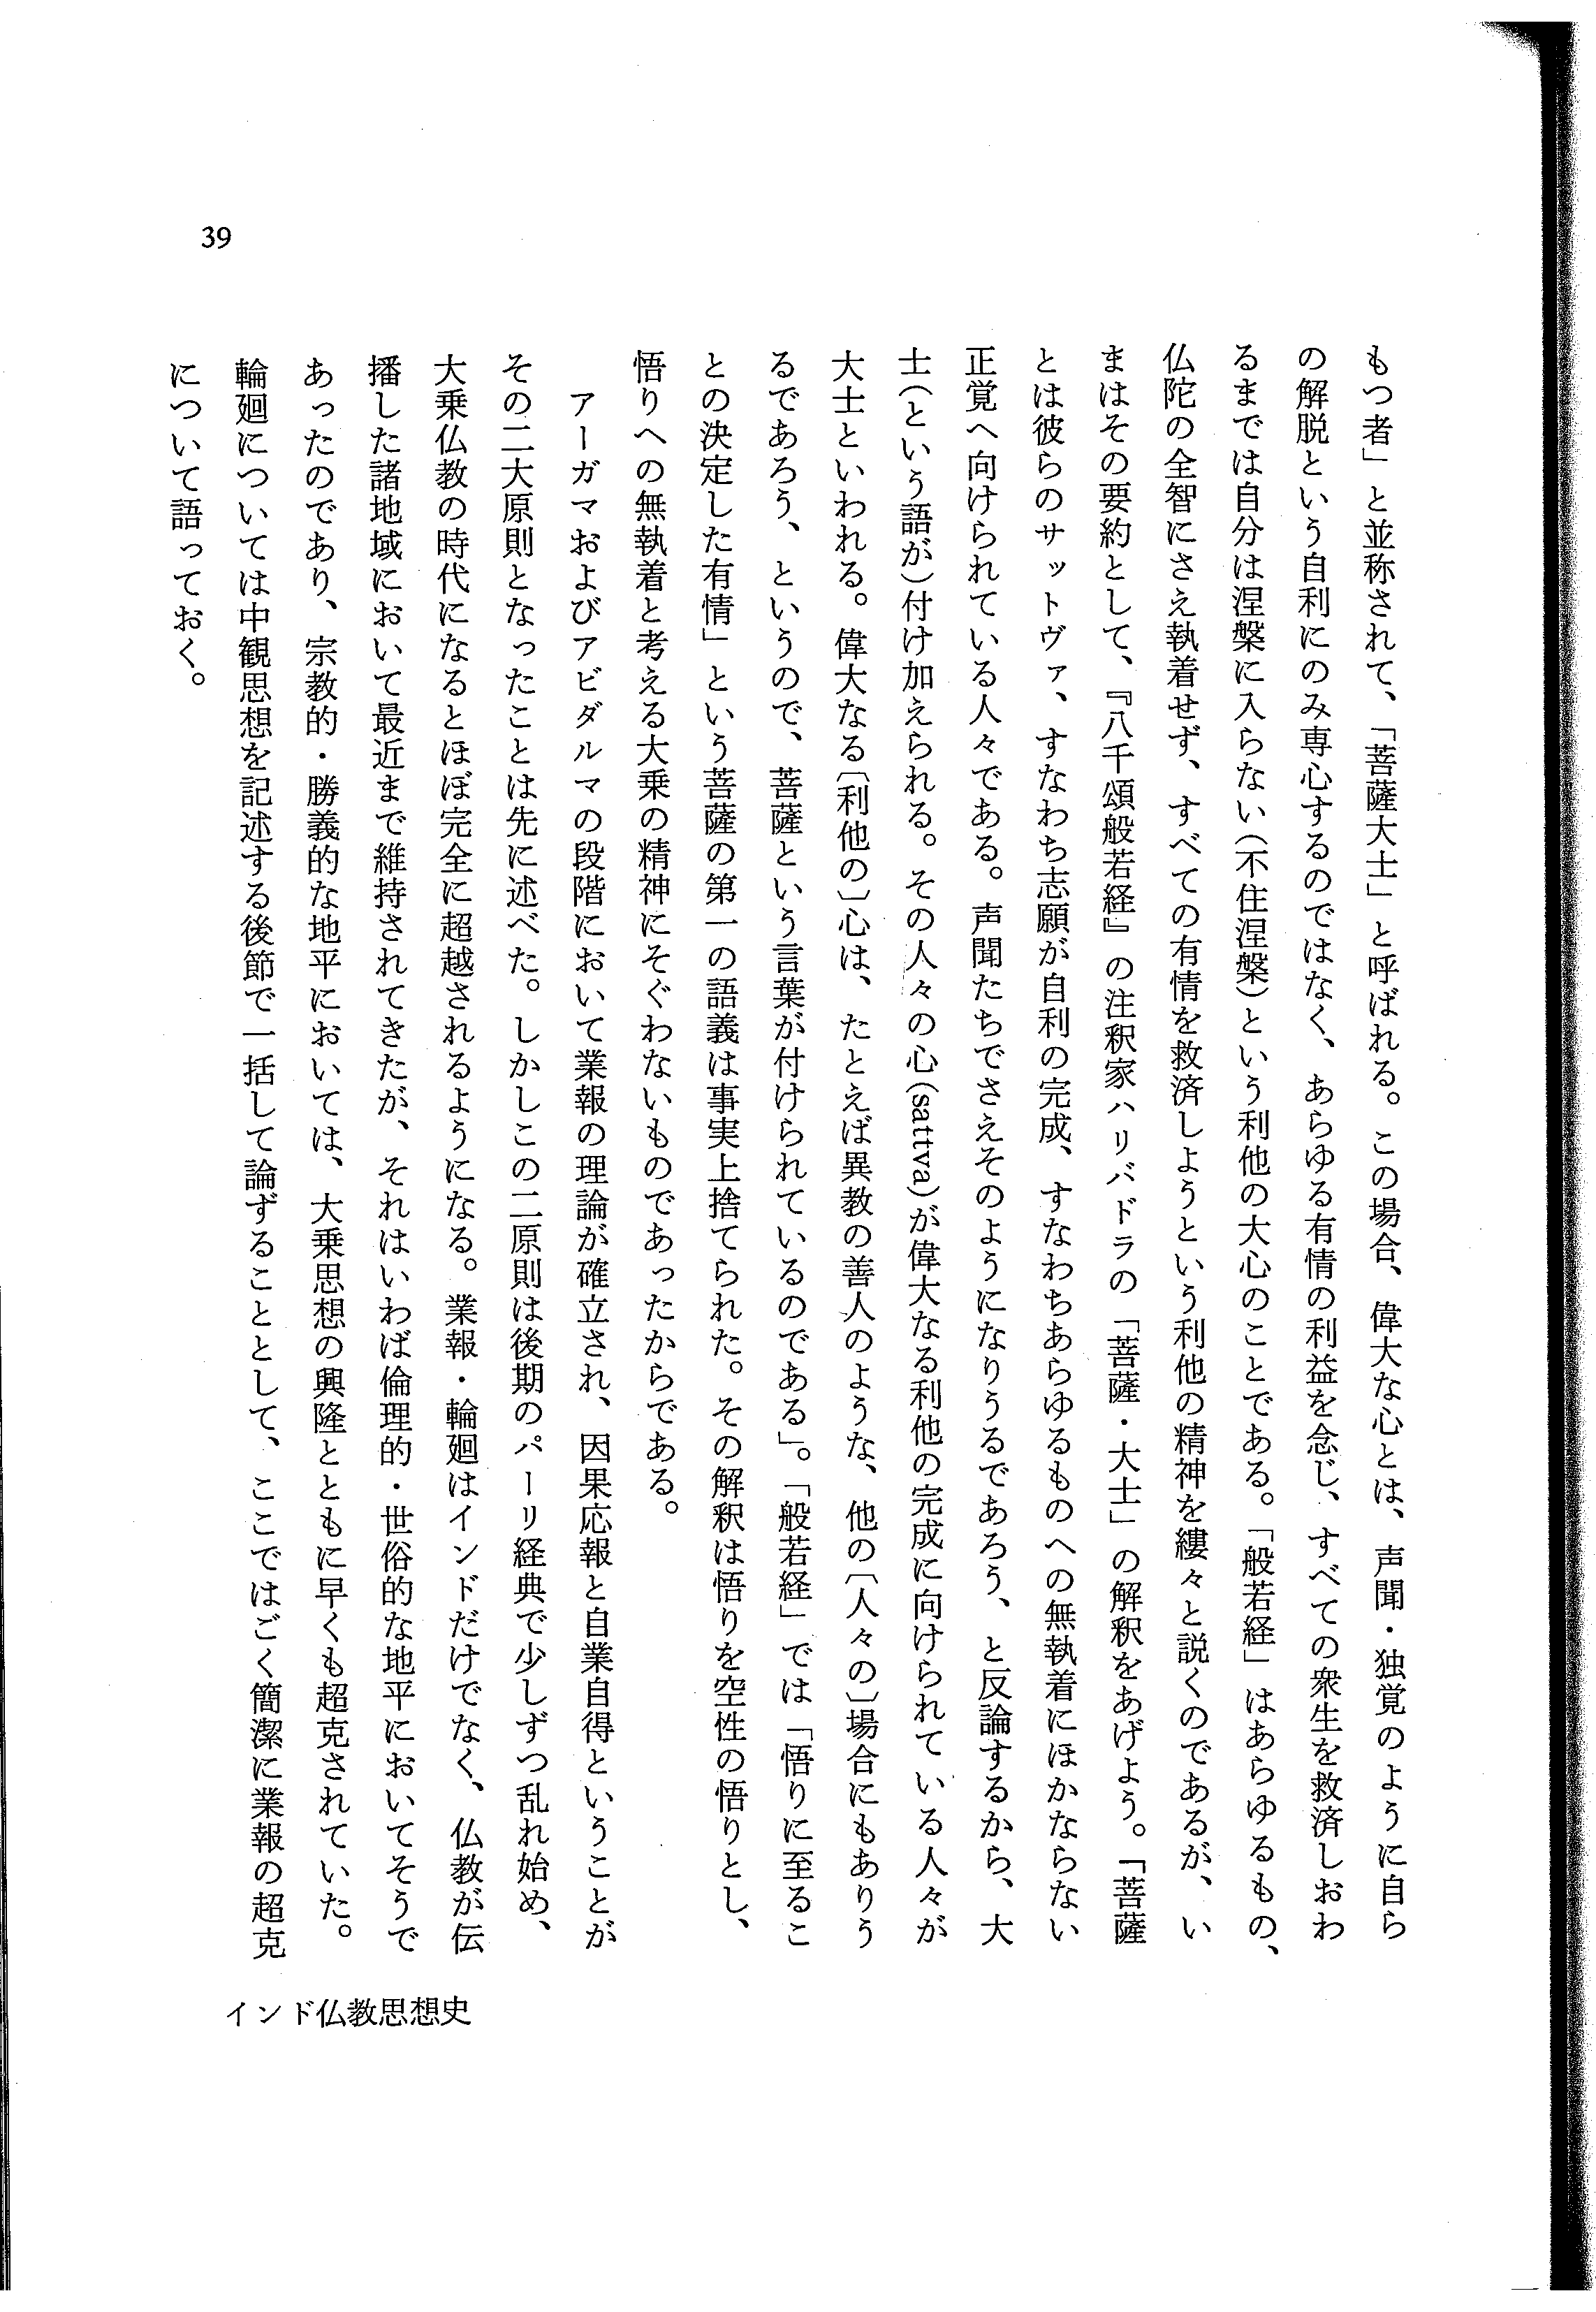 もつ者」と並称されて、「菩薩大士」と呼ばれる。この場合、偉大な心とは、声聞・独覚のように自ら
の解脱という自利にのみ専心するのではなく、あらゆる有情の利益を念じ、すべての衆生を救済しおわ
るまでは自分は涅槃に入らない（不住涅槃）という利他の大心のことである。「般若経」はあらゆるもの、
仏陀の全智にさえ執着せず、すべての有情を救済しようという利他の精神を縷々と説くのであるが、い
まはその要約として、『八千頌般若経』の注釈家ハリバドラの「菩薩・大士」の解釈をあげよう。「菩薩
とは彼らのサットヴァ、すなわち志願が自利の完成、すなわちあらゆるものへの無執着にほかならない
正覚へ向けられている人々である。声聞たちでさえそのようになりうるであろう、と反論するから、大
士（という語が）付け加えられる。その人々の心（sattva）が偉大なる利他の完成に向けられている人々が
大士といわれる。偉大なる〔利他の〕心は、たとえば異教の善人のような、他の〔人々の〕場合にもありう
るであろう、というので、菩薩という言葉が付けられているのである」。「般若経」では「悟りに至るこ
との決定した有情」という菩薩の第一の語義は事実上捨てられた。その解釈は悟りを空性の悟りとし、
悟りへの無執着と考える大乗の精神にそぐわないものであったからである。
アーガマおよびアビダルマの段階において業報の理論が確立され、因果応報と自業自得ということが
その二大原則となったことは先に述べた。しかしこの二原則は後期のパーリ経典で少しずつ乱れ始め、
大乗仏教の時代になるとほぼ完全に超越されるようになる。業報・輪廻はインドだけでなく、仏教が伝
播した諸地域において最近まで維持されてきたが、それはいわば倫理的・世俗的な地平においてそうで
あったのであり、宗教的・勝義的な地平においては、大乗思想の興隆とともに早くも超克されていた。
輪廻については中観思想を記述する後節で一括して論ずることとして、ここではごく簡潔に業報の超克
について語っておく。
39
インド仏教思想史